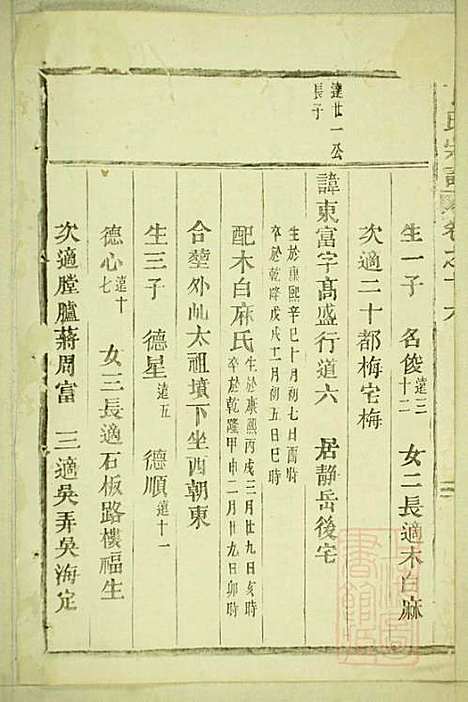 生一子 名俊達三十二 女二長適木白麻
次適二十都梅宅梅
達廿一公
長子
諱東富字高盛行道六 居靜岳後宅
生於康熙辛巳十月初七日酉時
卒於乾隆戊戌二月初五日巳時
配木白麻氏
生於康熙丙戌三月廿九日亥時
卒於乾隆甲申二月廿九日卯時
合塟外山太祖墳下坐酉朝東
生三子 德星達五 德順達十一
德心達十七 女三長適石板路樓福生
次適膛臚蔣周富 三適吳弄吳海定